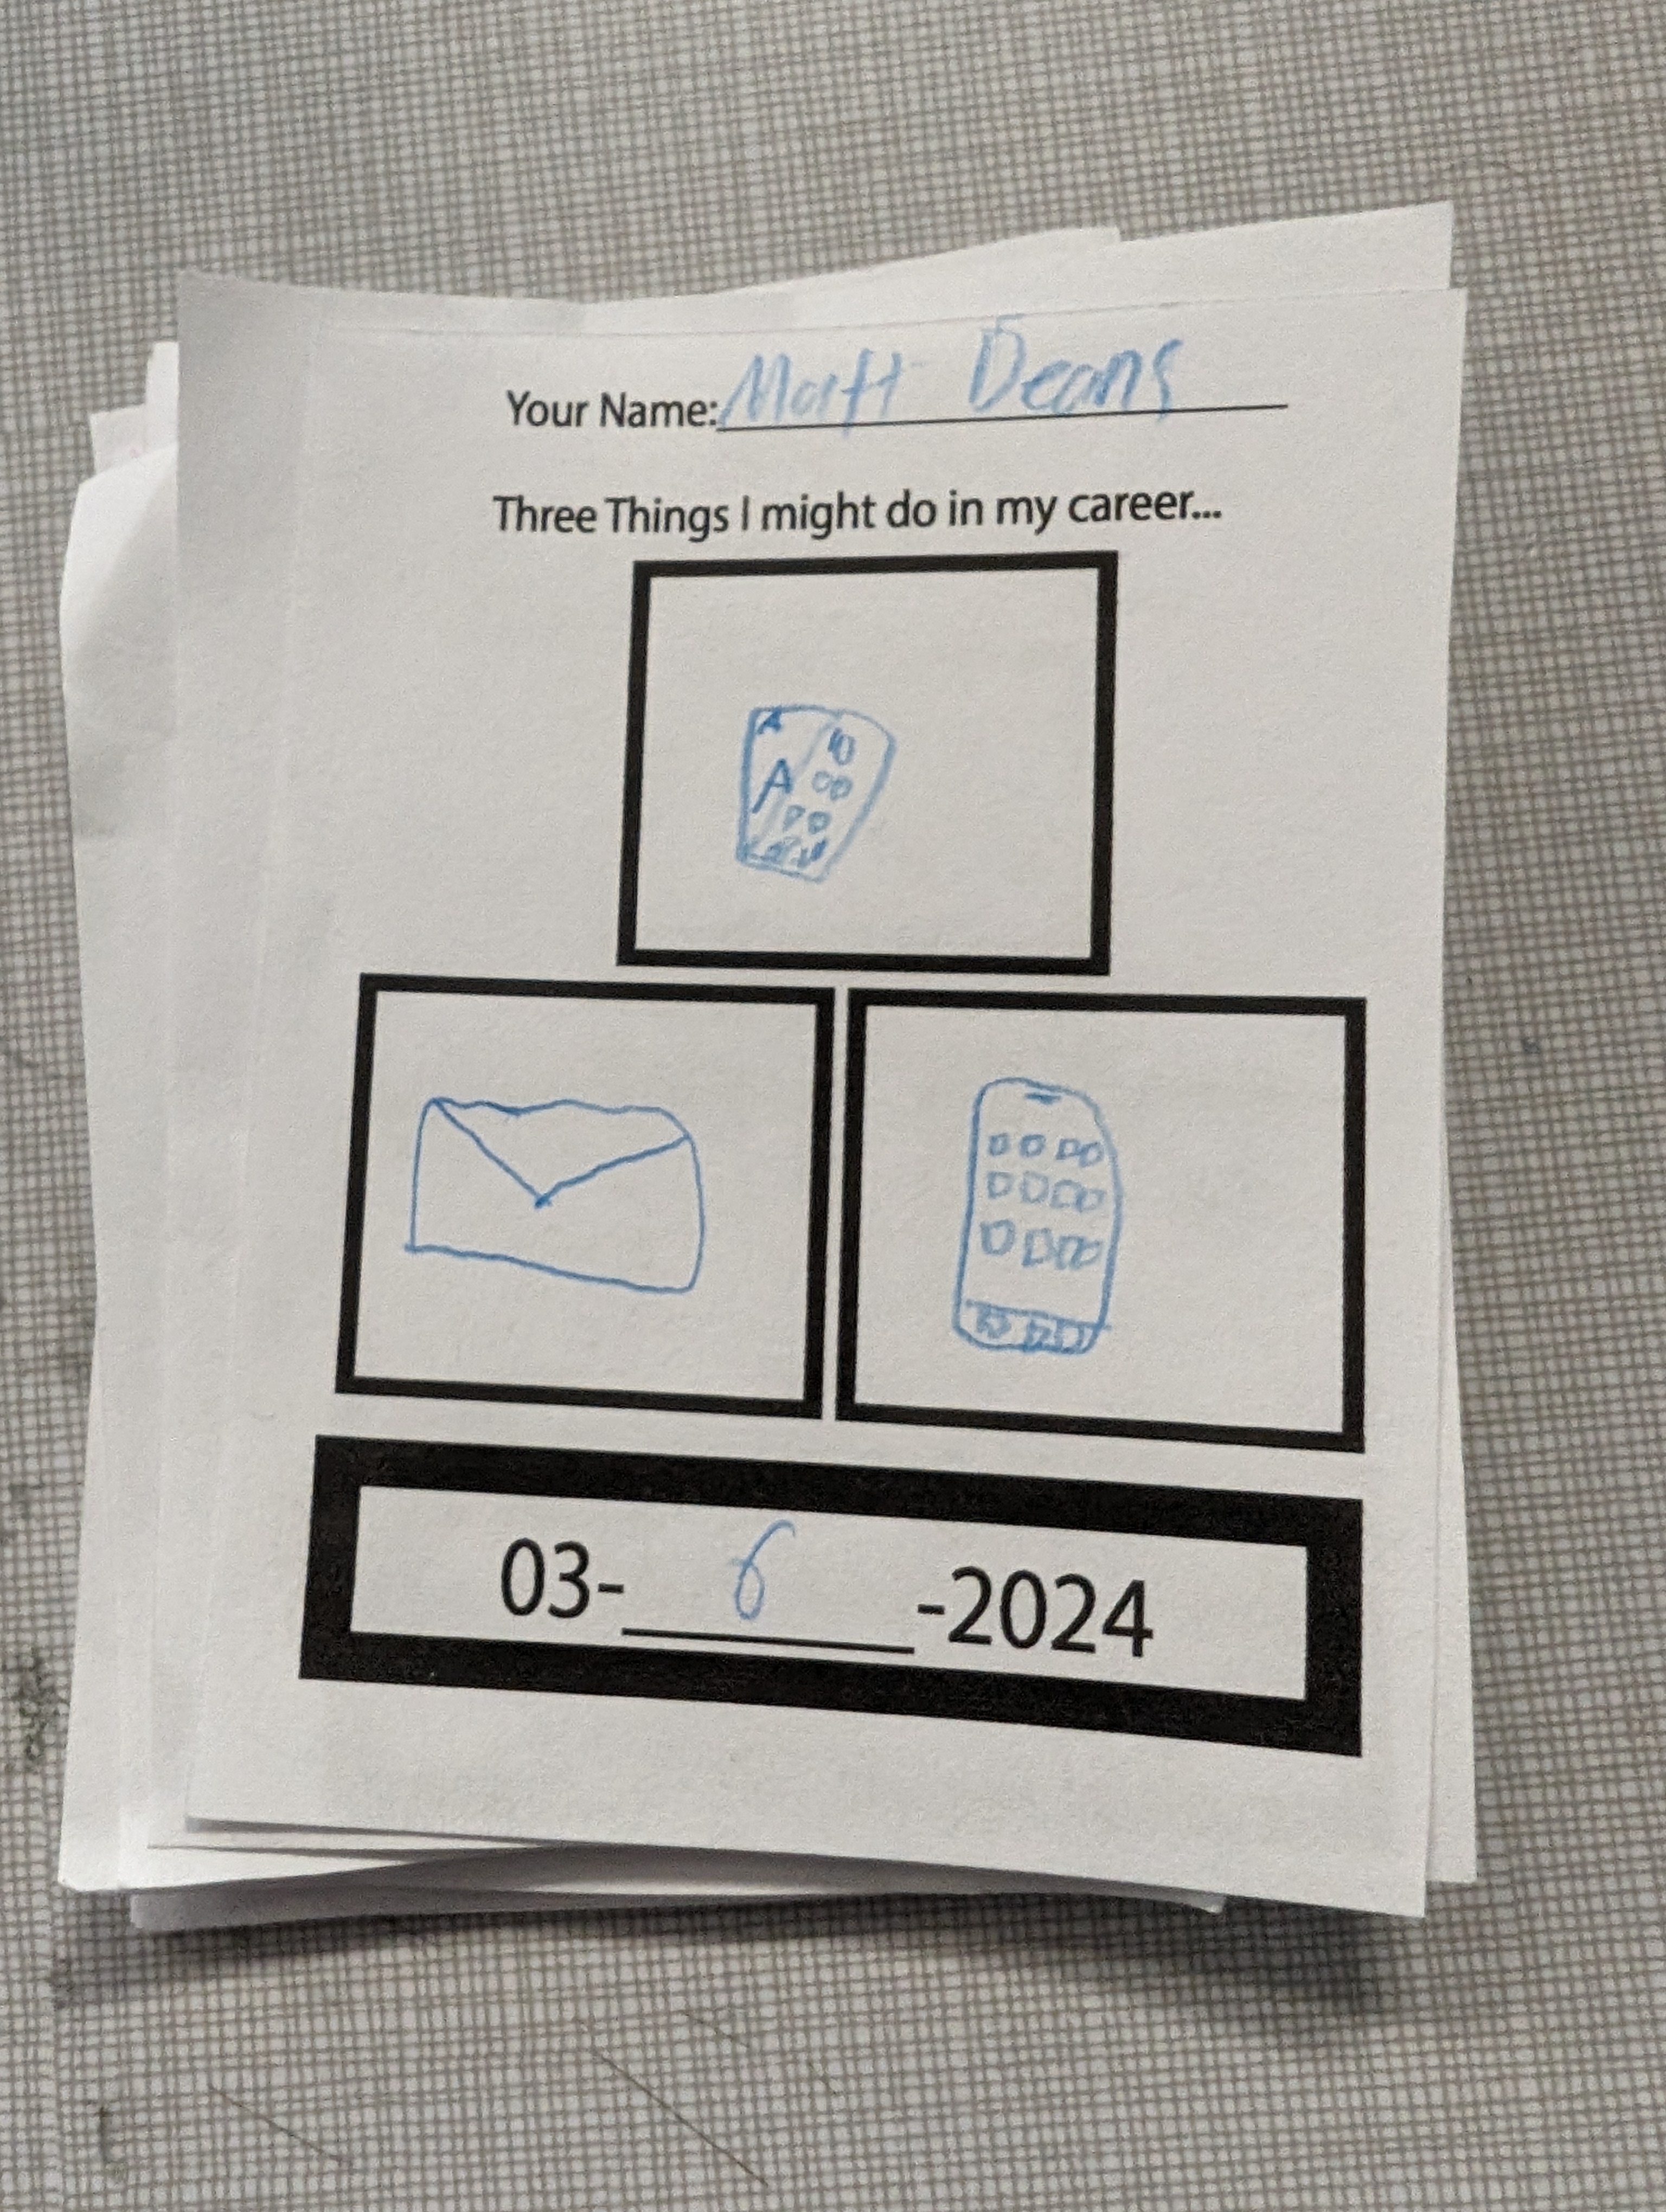 Your Name: Matt Deans
Three Things I might do in my career...
A 10
A
03- 6 -2024